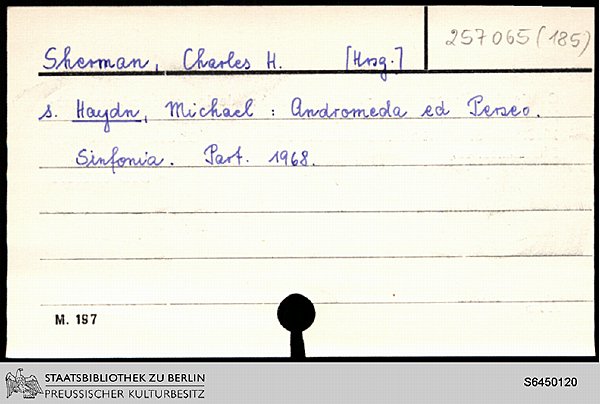 Sherman, Charles H. [Hrsg.]
257065 (185)
s. Haydn, Michael : Andromeda ed Perseo.
Sinfonia. Part. 1968.
M. 197
STAATSBIBLIOTHEK ZU BERLIN
PREUSSISCHER KULTURBESITZ
S6450120